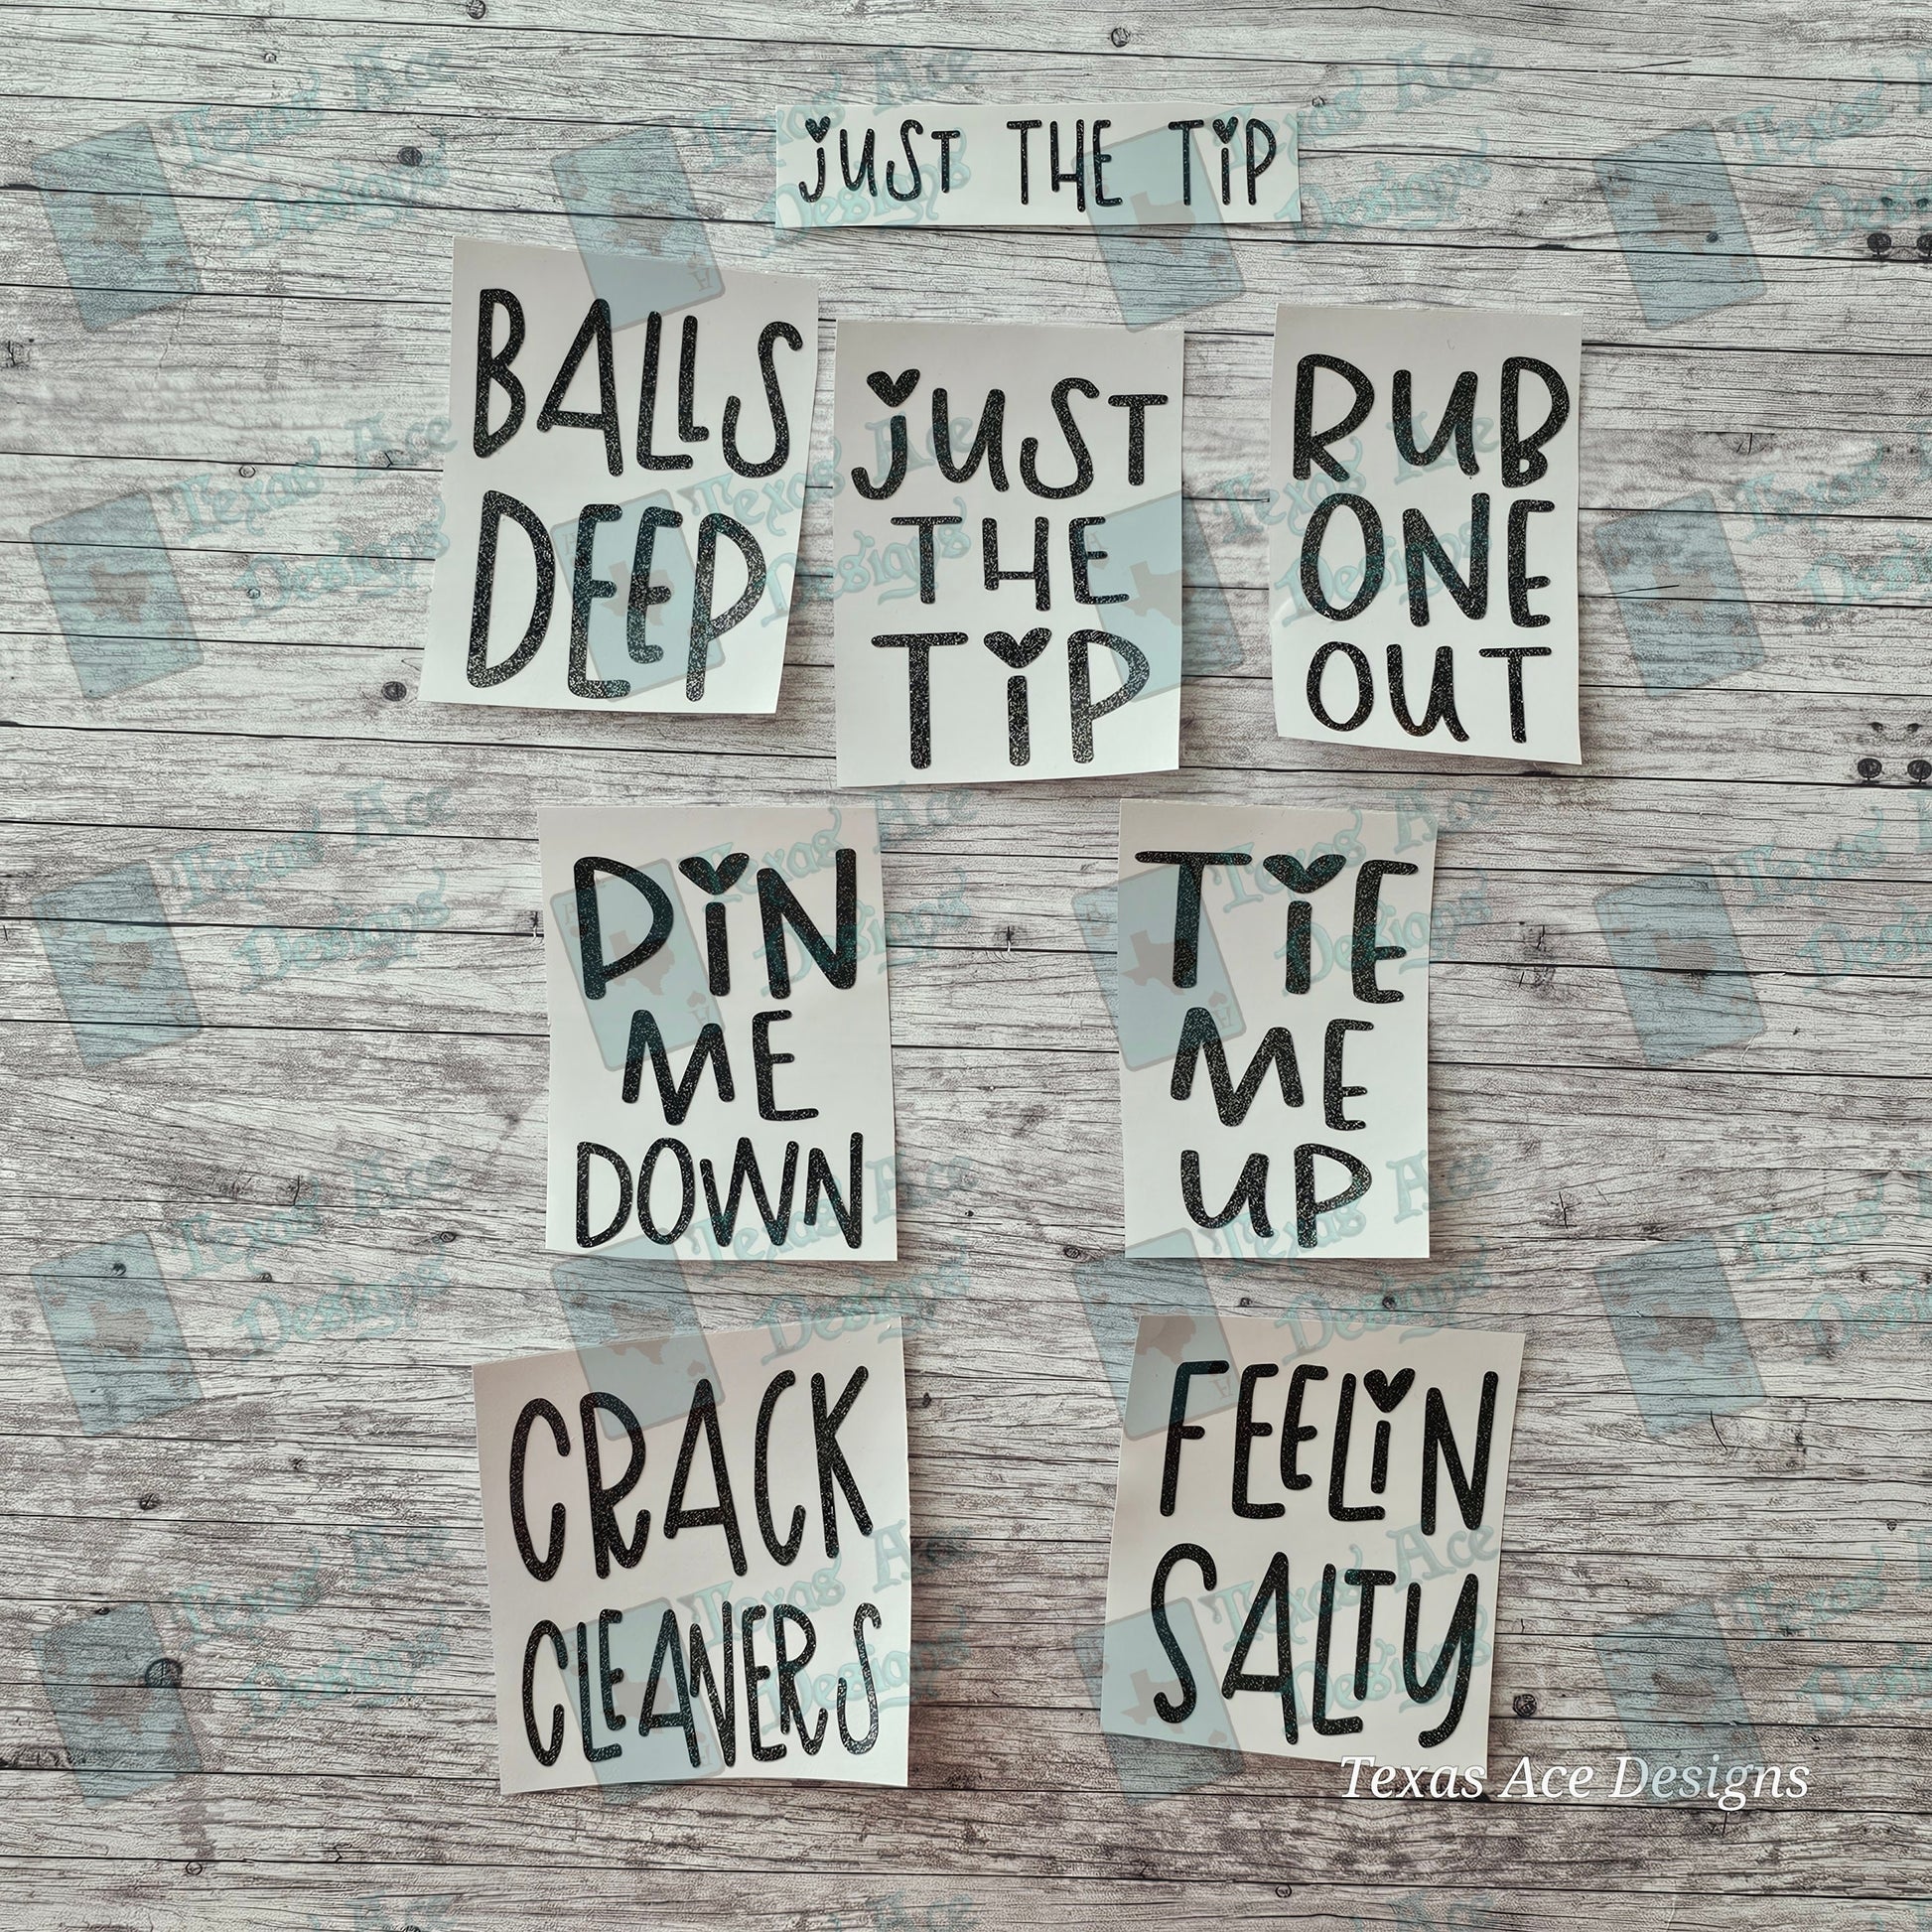 jUST THE TiP
BALLS
DEEP
jUST
THE
TiP
RUB
ONE
OUT
PiN
ME
DOWN
TiE
ME
UP
CRACK
CLEANERS
FEELiN
SALTY
Texas Ace Designs